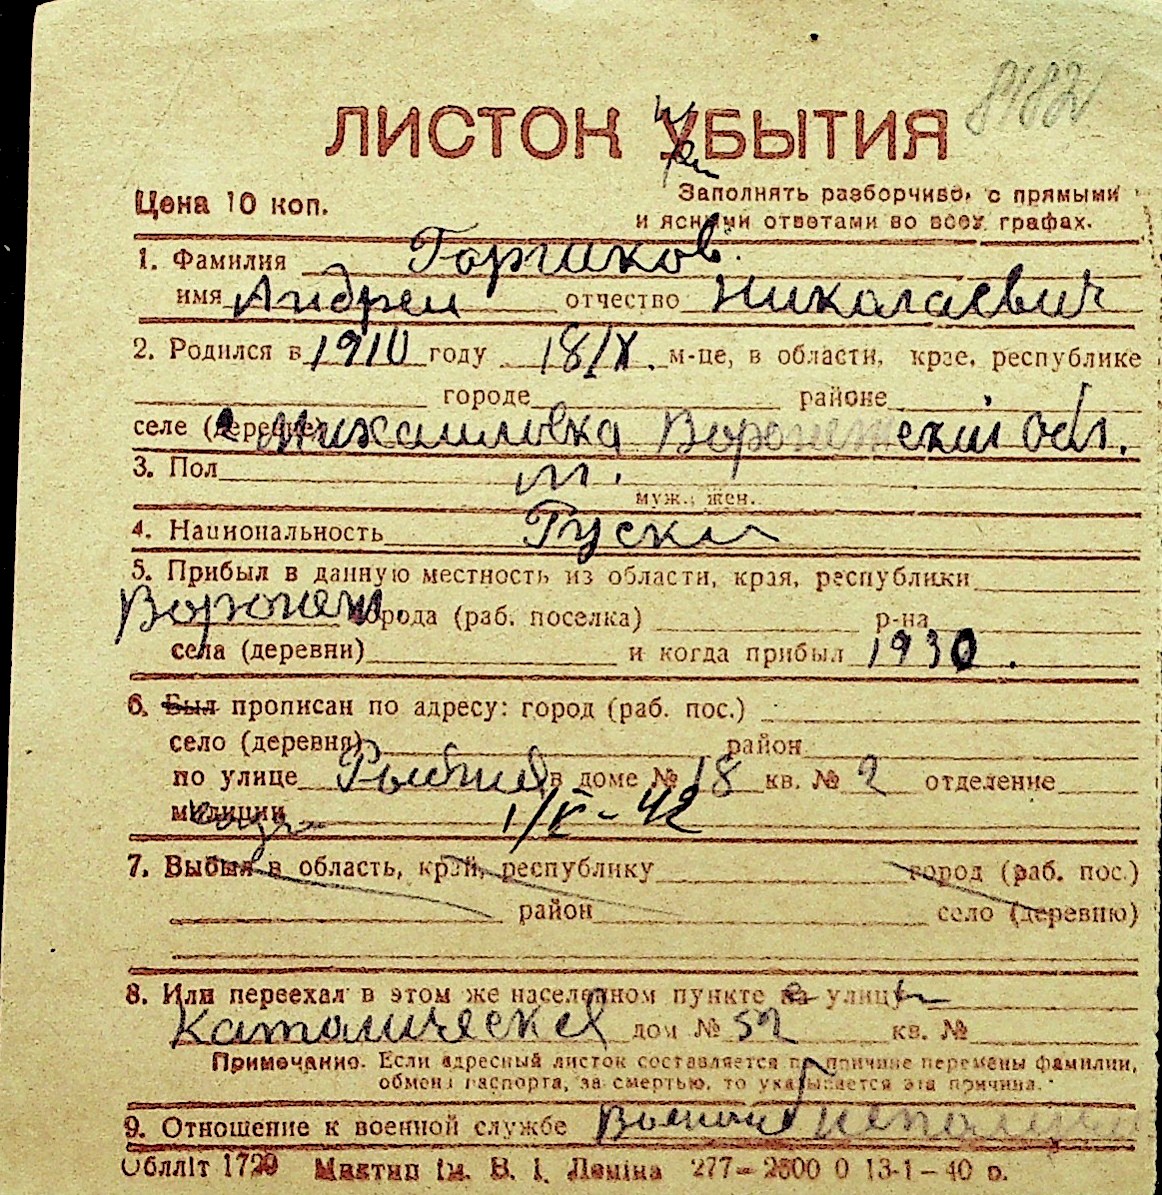 8182
ЛИСТОК УБЫТИЯ
При
Цена 10 коп.
Заполнять разборчиво, с прямыми
и ясными ответами во всех графах.
1. Фамилия Горшков
имя Андрей отчество Николаевич
2. Родился в 1910 году 18/X. м-це, в области, крае, республике
городе районе
селе (деревне) Михайловка Воронежской обл.
3. Пол м.
муж., жен.
4. Национальность Руски
5. Прибыл в данную местность из области, края, республики
Воронеж. города (раб. поселка) р-на
села (деревни) и когда прибыл 1930.
6. Был прописан по адресу: город (раб. пос.)
село (деревня) район
по улице Рыбной в доме № 18 кв. № 2 отделение
милиции 1/V-42
7. Выбыл в область, край, республику город (раб. пос.)
район село (деревню)
8. Или переехал в этом же населенном пункте на улицу
Католическая дом № 52 кв. №
Примечание. Если адресный листок составляется по причине перемены фамилии,
обмена паспорта, за смертью, то указывается эта причина.
9. Отношение к военной службе
Облліт 1729 Мактип ім. В. І. Леніна 277-2500 0 13-1-40 р.